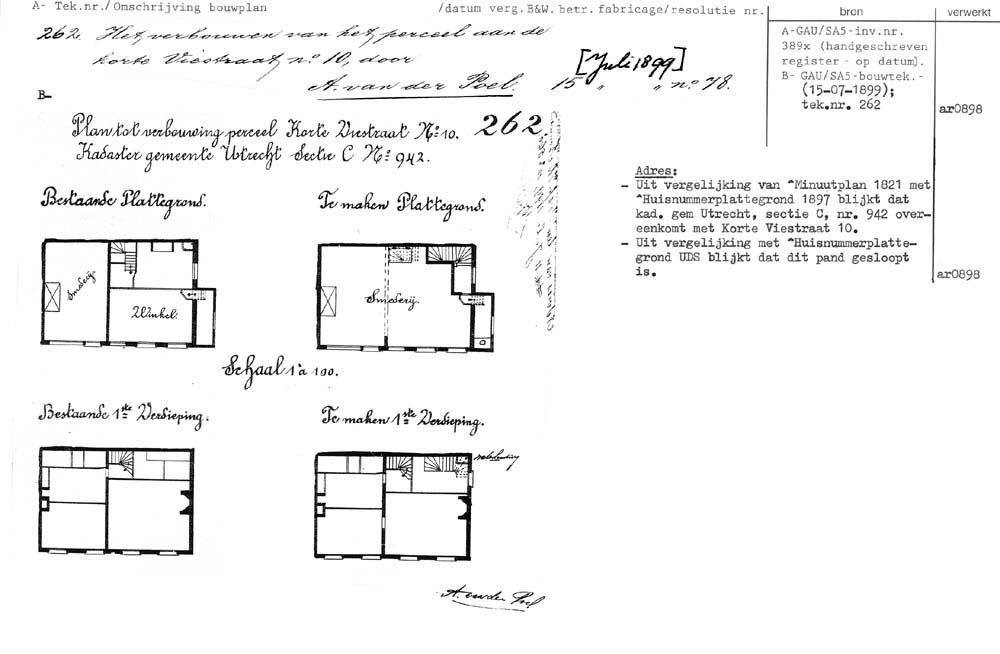 A- Tek.nr./Omschrijving bouwplan /datum verg.B&W.betr.fabricage/resolutie nr.
bron
verwerkt
262. Het verbouwen van het perceel aan de
korte Viestraat, no 10, door
A. van der Poel. 15 " " no 78.
[Juli 1899]
A-GAU/SA5-inv.nr.
389x (handgeschreven
register - op datum).
B- GAU/SA5-bouwtek.-
(15-07-1899);
tek.nr. 262
ar0898
B-
Plan tot verbouwing perceel Korte Viestraat No 10. 262.
Kadaster gemeente Utrecht Sectie C No 942.
Adres:
- Uit vergelijking van ^Minuutplan 1821 met
^Huisnummerplattegrond 1897 blijkt dat
kad. gem Utrecht, sectie C, nr. 942 over-
eenkomt met Korte Viestraat 10.
- Uit vergelijking met ^Huisnummerplatte-
grond UDS blijkt dat dit pand gesloopt
is.
ar0898
Bestaande Plattegrond.
Te maken Plattegrond.
Smederij
Winkel.
Smederij.
Schaal 1 à 100.
Bestaande 1ste Verdieping.
Te maken 1ste Verdieping.
A. van der Poel